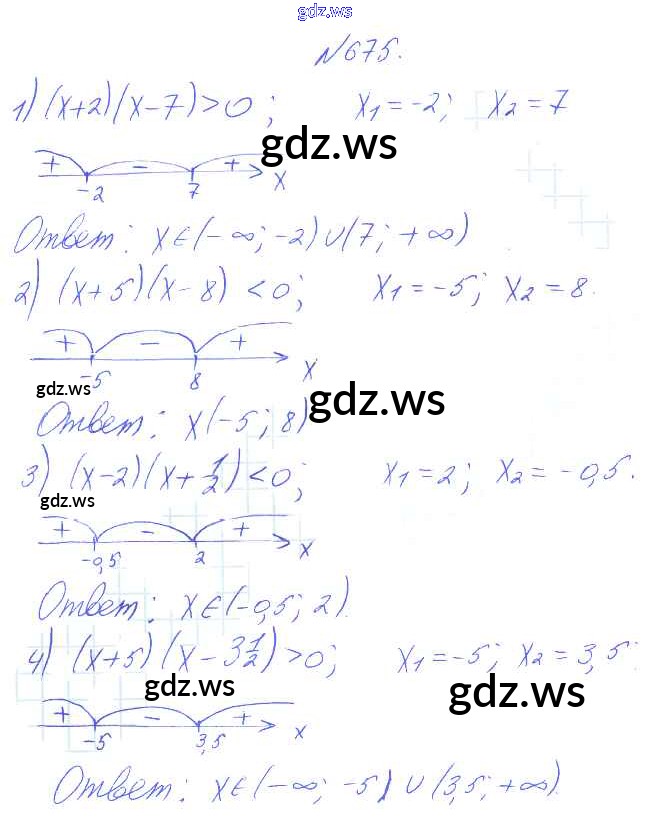 gdz.ws
N675.
1) (x+2)(x-7)>0; x1=-2; x2=7
gdz.ws
+ - +
-2 7 x
Ответ: x∈(-∞;-2)∪(7;+∞)
2) (x+5)(x-8)<0; x1=-5; x2=8.
+ - +
-5 8 x
gdz.ws
gdz.ws
Ответ: x(-5;8)
3) (x-2)(x+1/2)<0; x1=2; x2=-0,5.
gdz.ws
+ - +
-0,5 2 x
Ответ: x∈(-0,5; 2).
4) (x+5)(x-3 1/2)>0; x1=-5; x2=3,5.
gdz.ws
gdz.ws
+ - +
-5 3,5 x
Ответ: x∈(-∞; -5)∪(3,5;+∞).